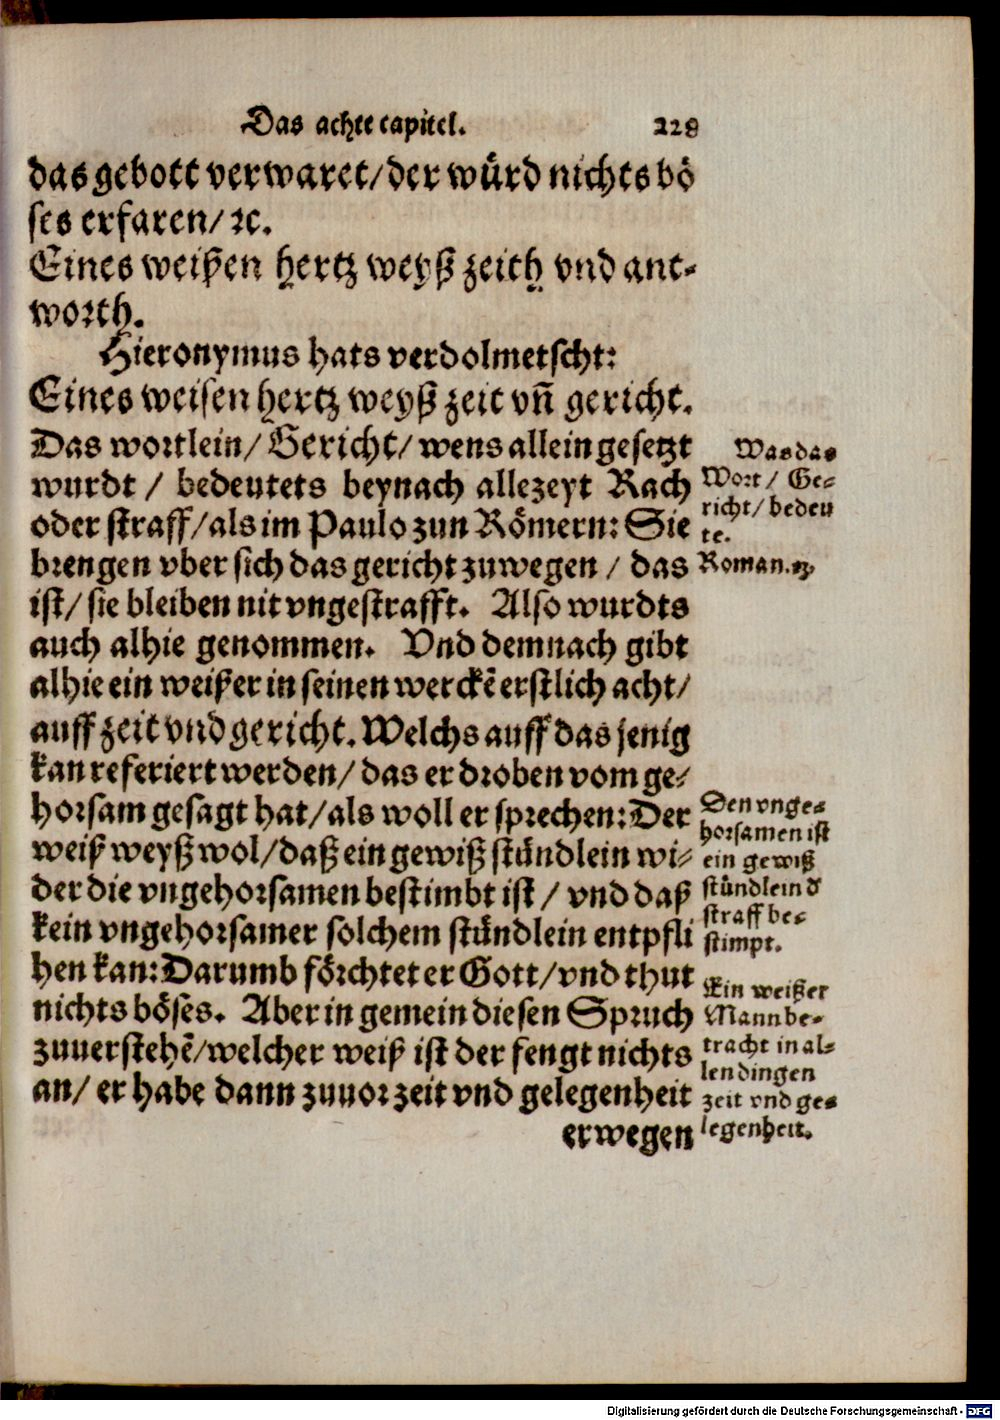 Das achte capitel. 228
das gebott verwaret/der wuͤrd nichts boͤ
ses erfaren/ ꝛc.
Eines weißen hertz weyß zeith vnd ant-
worth.
Hieronymus hats verdolmetscht:
Eines weisen hertz weyß zeit vñ gericht.
Das wortlein/ Gericht/ wens allein gesetzt
wurdt / bedeutets beynach allezeyt Rach
oder straff/als im Paulo zun Roͤmern: Sie
brengen vber sich das gericht zuwegen / das
ist/ sie bleiben nit vngestrafft. Also wurdts
auch alhie genommen. Vnd demnach gibt
alhie ein weißer in seinen werckē erstlich acht/
auff zeit vnd gericht. Welchs auff das jenig
kan referiert werden/ das er droben vom ge-
horsam gesagt hat/als woll er sprechen: Der
weiß weyß wol/daß ein gewiß stuͤndlein wi-
der die vngehorsamen bestimbt ist / vnd daß
kein vngehorsamer solchem stuͤndlein entpfli
hen kan: Darumb foͤrchtet er Gott/vnd thut
nichts boͤses. Aber in gemein diesen Spruch
zuuerstehē/welcher weiß ist der fengt nichts
an/ er habe dann zuuor zeit vnd gelegenheit
erwegen
Was das
Wort/ Ge-
richt/ bedeu
te.
Roman. 13.
Den vnge-
horsamen ist
ein gewiß
stuͤndlein d
straff be-
stimpt.
Ein weißer
Mann be-
tracht in al-
len dingen
zeit vnd ge-
legenheit.
Digitalisierung gefördert durch die Deutsche Forschungsgemeinschaft - DFG